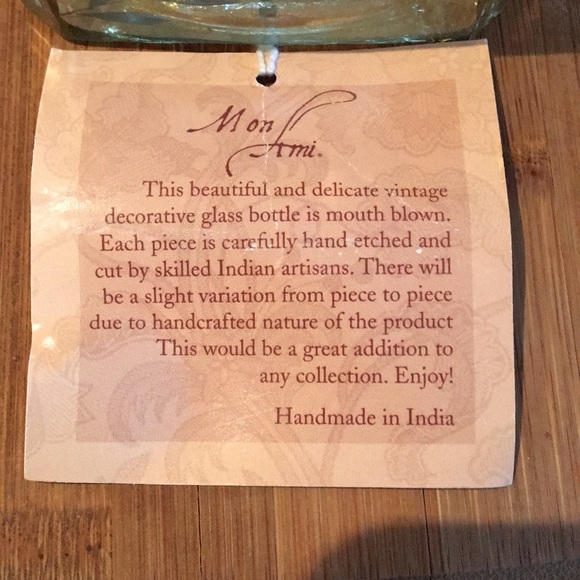 Mon
Ami.
This beautiful and delicate vintage
decorative glass bottle is mouth blown.
Each piece is carefully hand etched and
cut by skilled Indian artisans. There will
be a slight variation from piece to piece
due to handcrafted nature of the product
This would be a great addition to
any collection. Enjoy!
Handmade in India